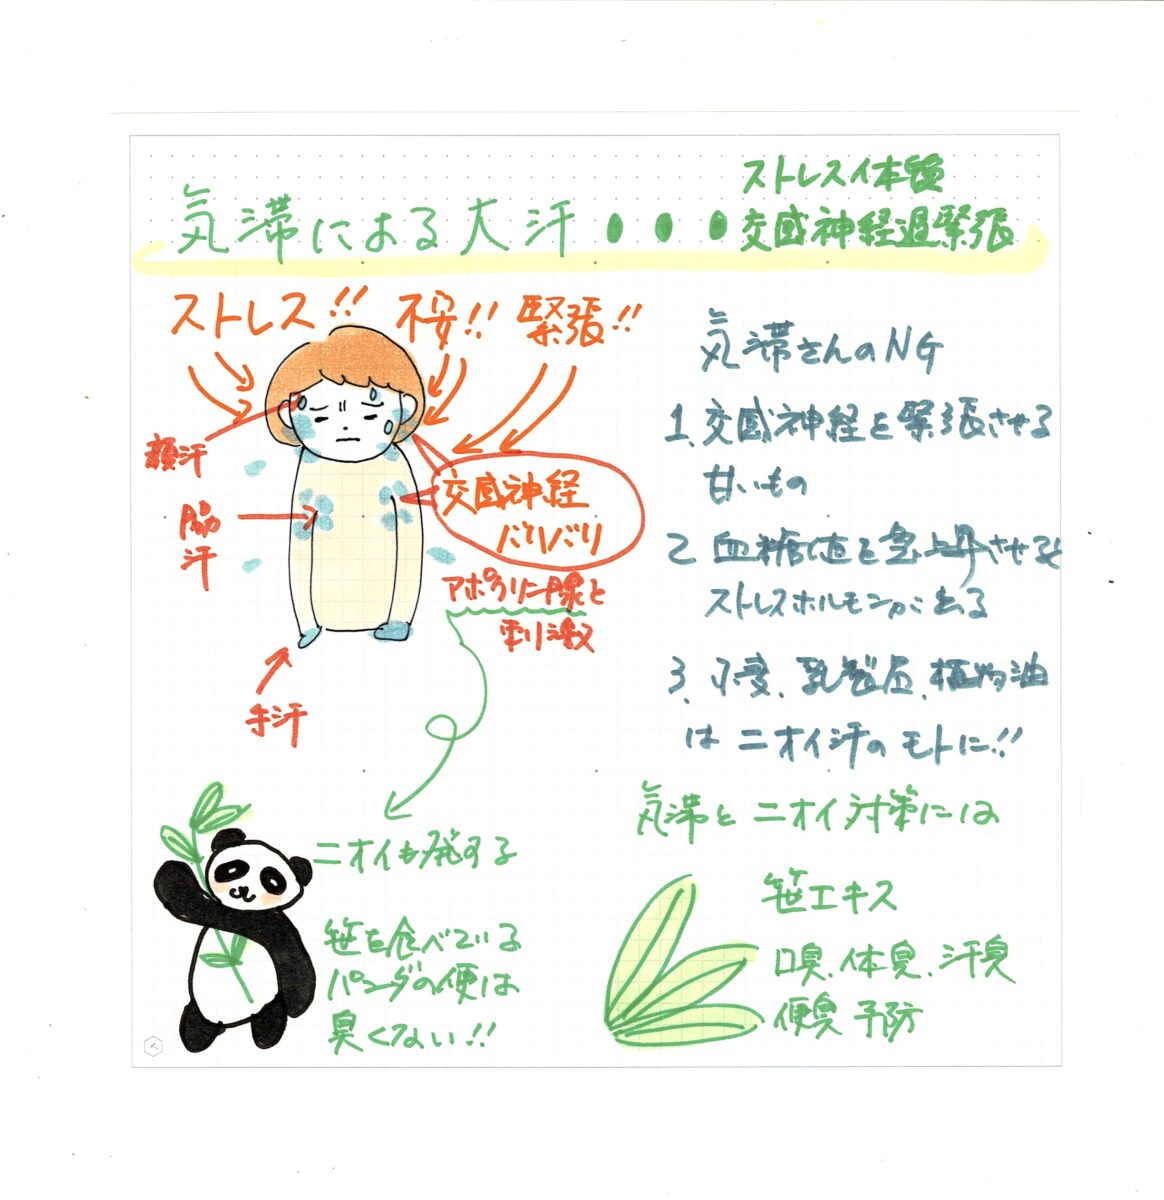 気滞による大汗・・・
ストレス体質
交感神経過緊張
ストレス!! 不安!! 緊張!!
顔汗
脇
汗
手汗
交感神経
バリバリ
アポクリン腺を
刺激
ニオイも発する
笹を食べている
パンダの便は
臭くない!!
気滞さんのNG
1. 交感神経を緊張させる
甘いもの
2 血糖値を急上昇させると
ストレスホルモンが出る
3. 小麦、乳製品、植物油
は ニオイ汗のモトに!!
気滞とニオイ対策には
笹エキス
口臭、体臭、汗臭
便臭 予防